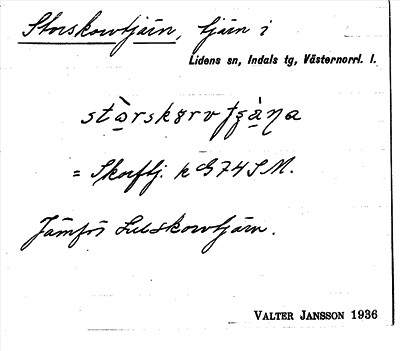 Storskorvtjärn, tjärn i
Lidens sn, Indals tg, Västernorrl. l.
= Skorftj. k G74SM.
Jämför Lillskorvtjärn.
VALTER JANSSON 1936